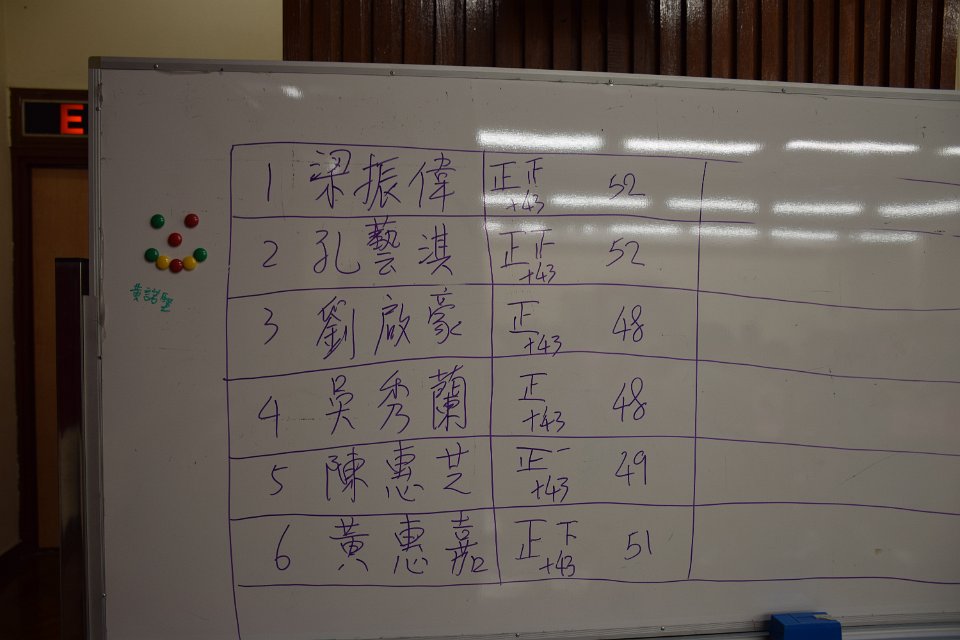 E
1 梁振偉 正 +43 52
2 孔藝淇 正 +43 52
3 劉啟豪 正 +43 48
4 吳秀蘭 正 +43 48
5 陳惠芝 正一 +43 49
6 黃惠嘉 正下 +43 51